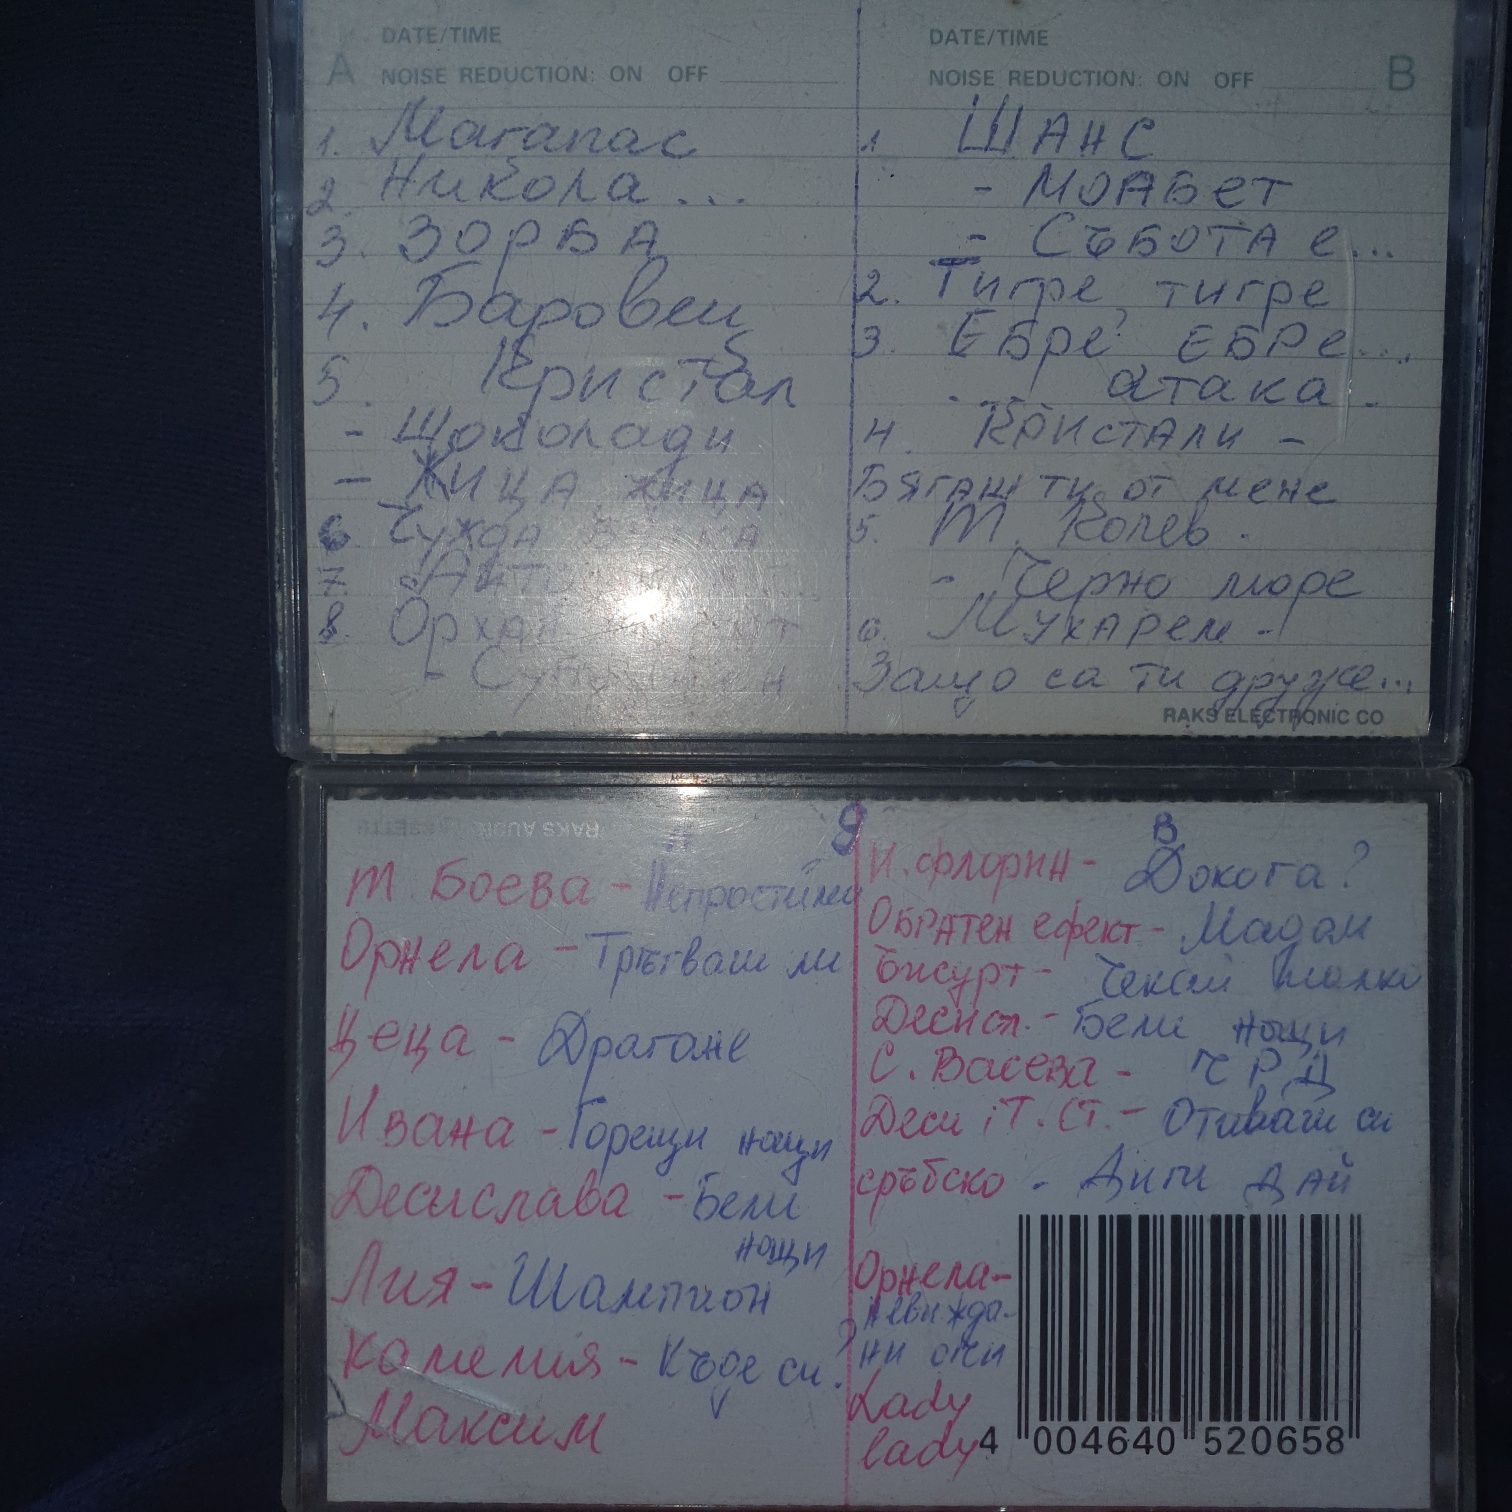 A
DATE/TIME
NOISE REDUCTION: ON OFF
1. Магапас
2. Никола...
3. ЗОРБА
4. Баровец
5. Кристал
- Шоколади
- Жица, жица
6 Чужда
7.
8. Орхан
-
DATE/TIME
NOISE REDUCTION: ON OFF
B
1 ШАНС
- МОАБЕТ
- СЪБОТА е...
2. Тигре, тигре
3. ЕБРе ЕБРе...
... атака.
4. КРИСТАЛИ -
Бягаш ти от мене
5. Т. Колев.
- Черно море
6. Мухарем -
Защо са ти друже...
RAKS ELECTRONIC CO
9
Т. Боева - Непростими
Орнела - Тръгваш ли
Цеца - Драгане
Ивана - Горещи нощи
Десислава - Бели
нощи
Лия - Шампион
Камелия - Къде си?
Максим
B
И. флорин - Докога?
ОБРАТЕН ефект - Мадам
- Чекай малко
Десисл. - Бели нощи
С. Васева - Ч Р Д
Деси іТ. СТ. - Отиваш си
сръбско - Диги дай
Орнела -
Невижда-
ни очи
Lady
lady
4 004640 520658
RAKS AUDIO CASSETTE